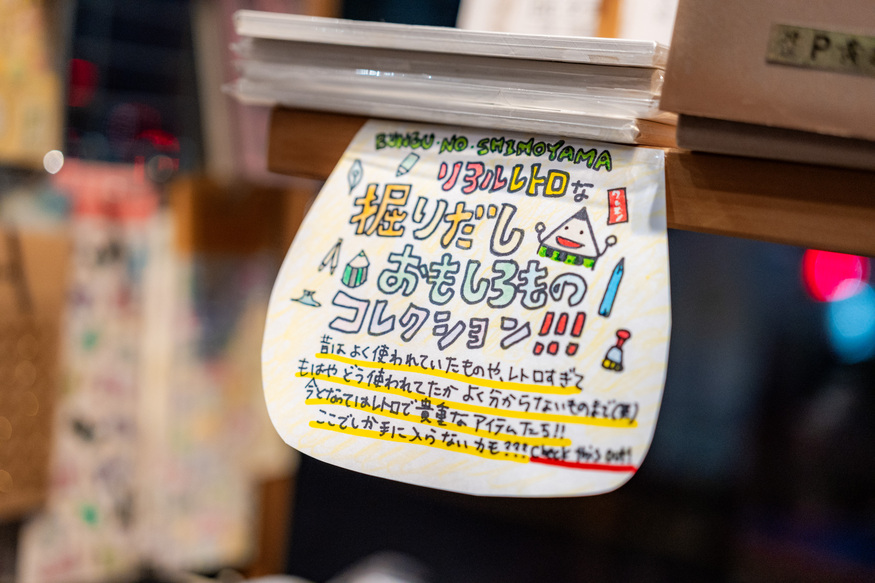 BUNGU・NO・SHIMOYAMA
リアルレトロな
掘りだし
おもしろもの
コレクション!!!
昔はよく使われていたものや、レトロすぎて
もはやどう使われてたかよく分からないものまで(笑)
今となってはレトロで貴重なアイテムたち!!
ここでしか手に入らないカモ??? Check this out!